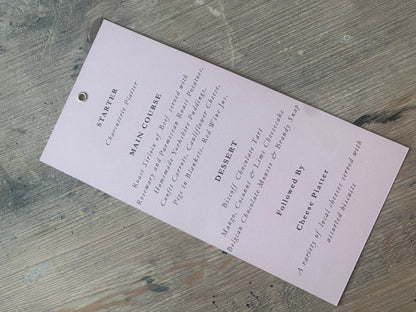 STARTER
Charcuterie Platter
MAIN COURSE
Roast Sirloin of Beef served with
Rosemary and Parmesan Roast Potatoes,
Homemade Yorkshire Puddings,
Confit Carrots, Cauliflower Cheese,
Pigs in Blankets, Red Wine Jus.
DESSERT
Biscoff Chocolate Tart
Mango, Coconut & Lime Cheesecake
Belgian Chocolate Mousse & Brandy Snap
Followed By
Cheese Platter
A variety of local cheeses served with
assorted biscuits